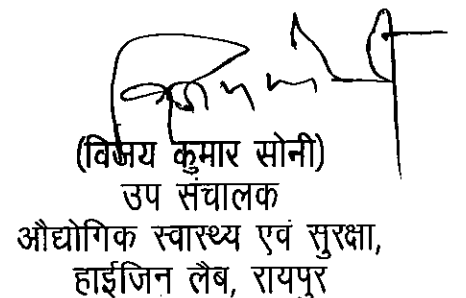 (विजय कुमार सोनी)
उप संचालक
औद्योगिक स्वास्थ्य एवं सुरक्षा,
हाईजिन लैब, रायपुर